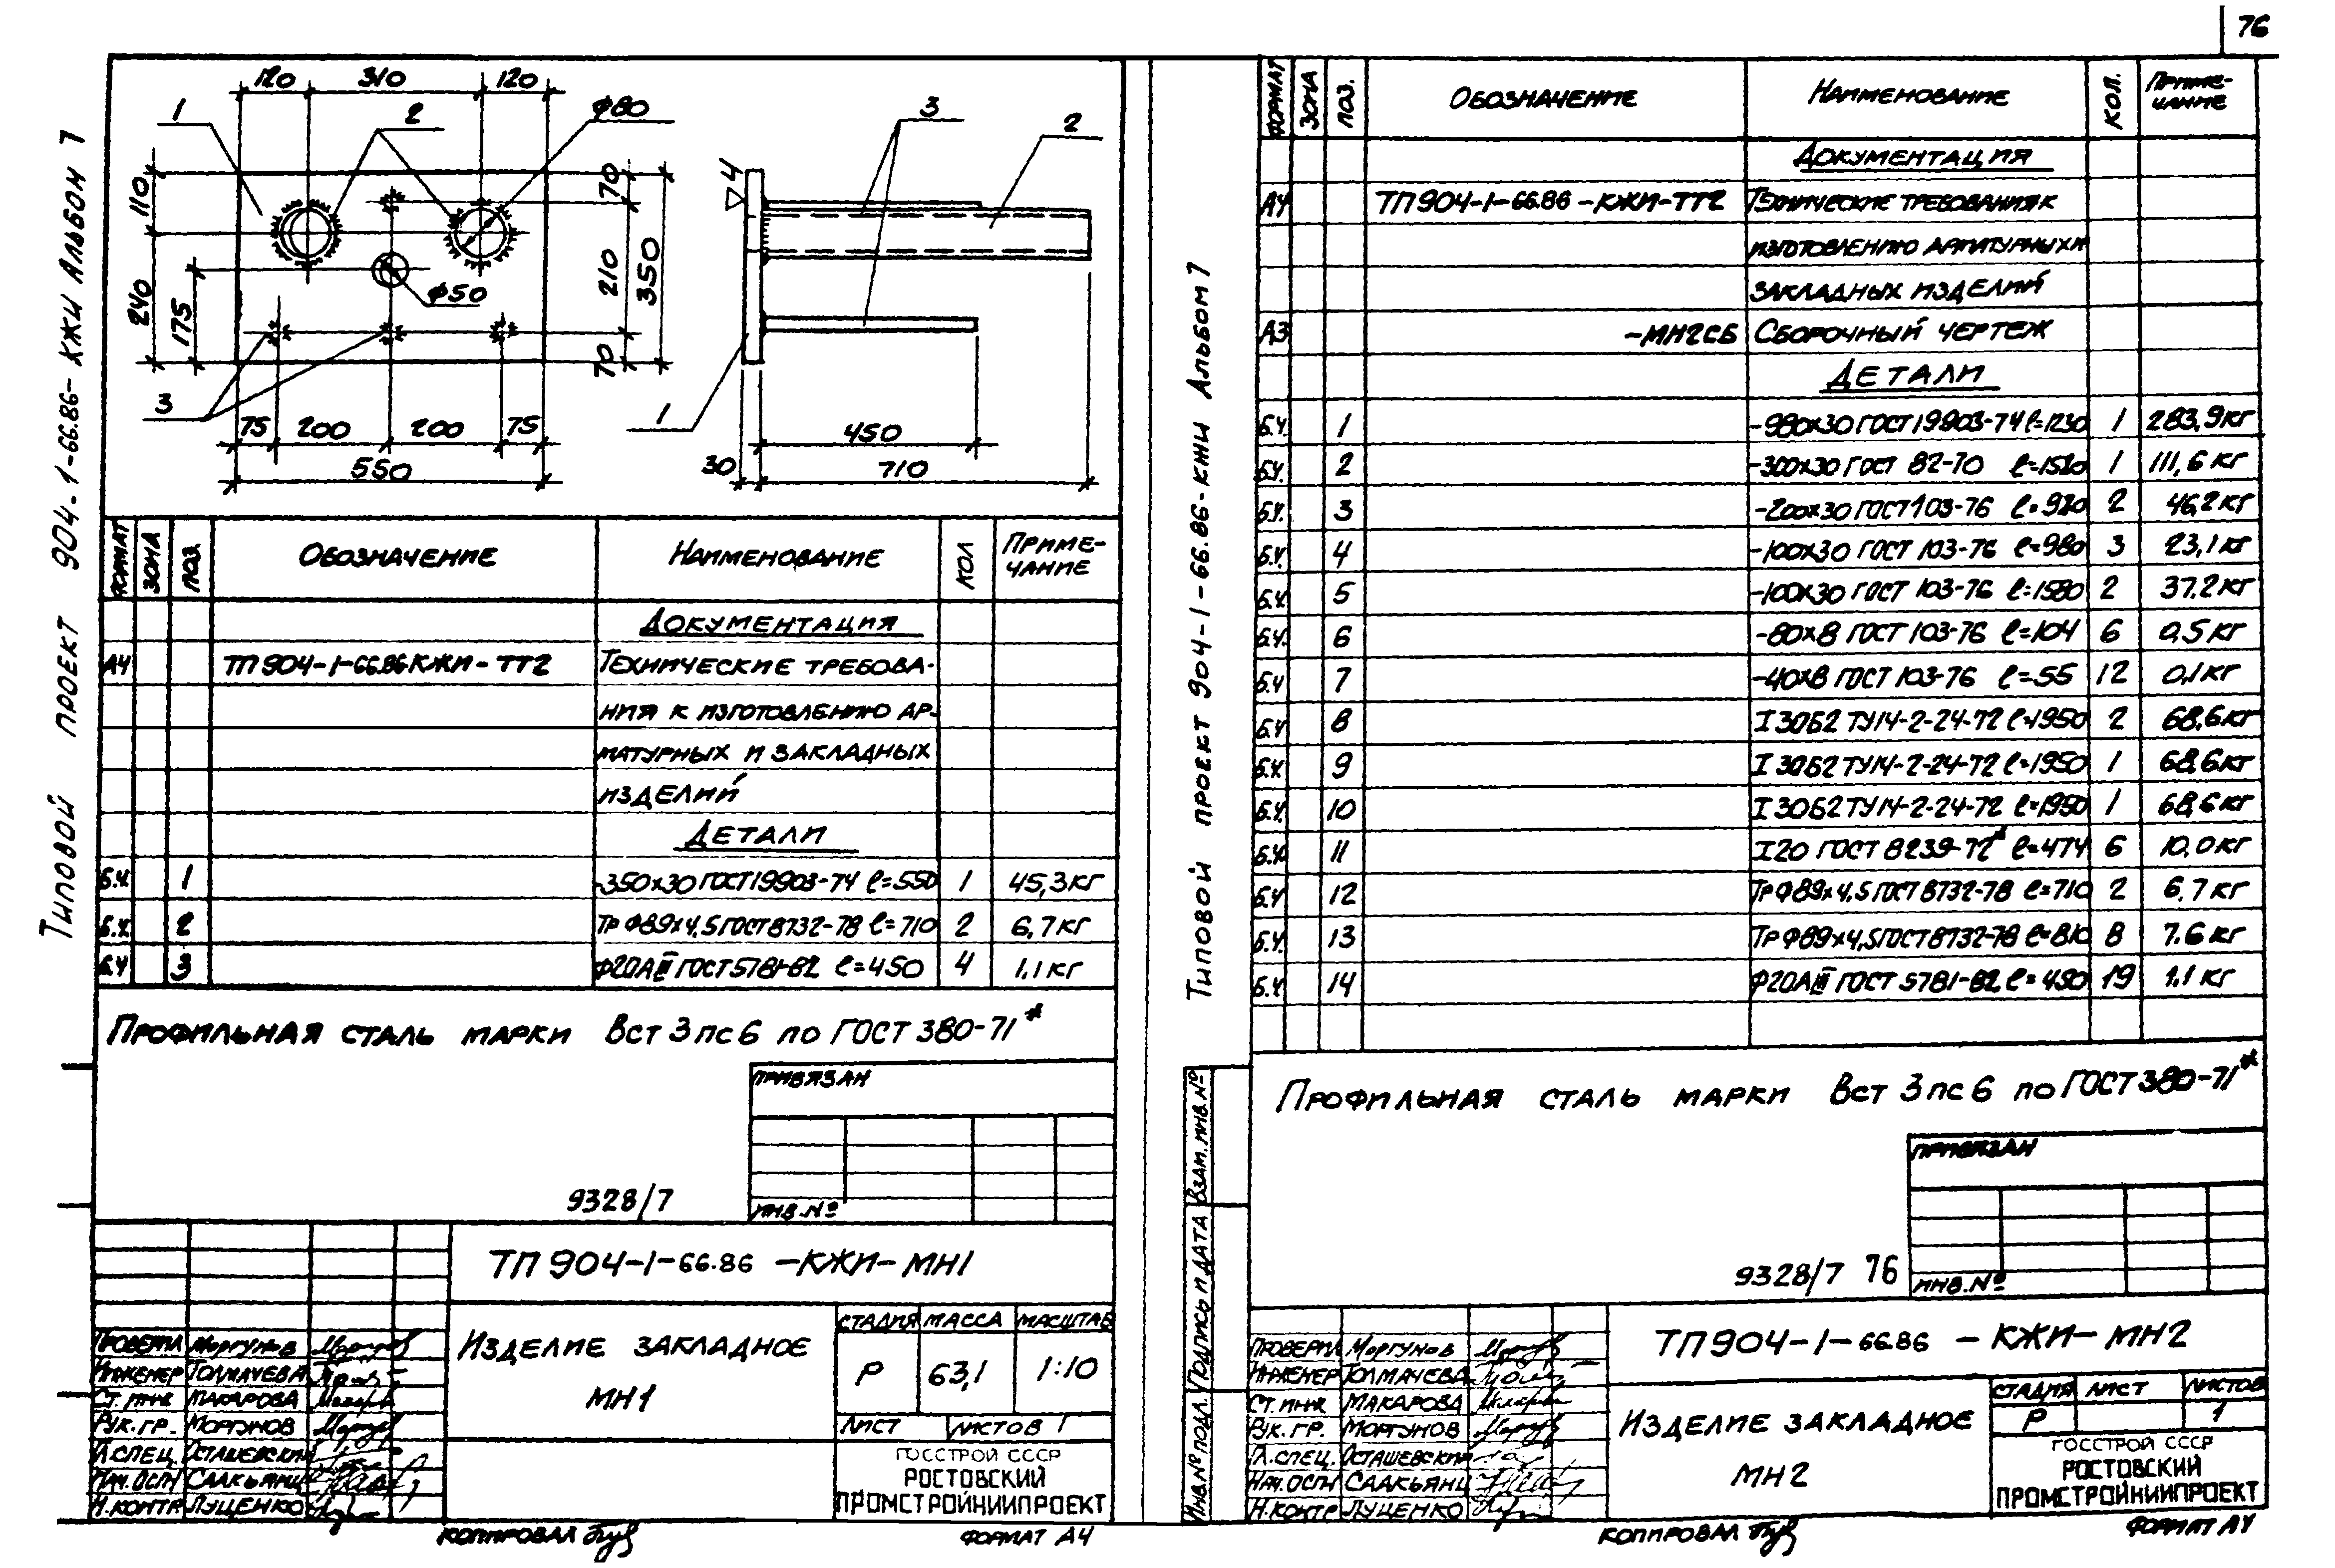 76
Типовой проект 904-1-66.86-КЖИ Альбом 7
120 310 120
1 2 ф80
110 240 175
70 210 350 70
ф50
3
75 200 200 75
550
4 3 2
1
450
30 710
Формат Зона Поз. Обозначение Наименование Кол Приме-
чание
Документация
А4 ТП904-1-66.86 КЖИ-ТТ2 Технические требова-
ния к изготовлению ар-
матурных и закладных
изделий
Детали
Б.Ч. 1 -350х30 ГОСТ19903-74 ℓ=550 1 45,3кг
Б.Ч. 2 Тр Ф89х4,5 ГОСТ8732-78 ℓ=710 2 6,7кг
Б.Ч 3 Ф20АIII ГОСТ5781-82 ℓ=450 4 1.1кг
Профильная сталь марки Вст 3 пс 6 по ГОСТ 380-71*
Привязан
9328/7
Инв.№
ТП 904-1-66.86 -КЖИ-МН1
Изделие закладное
МН1
Стадия Масса Масштаб
Р 63,1 1:10
Лист Листов 1
ГОССТРОЙ СССР
РОСТОВСКИЙ
ПРОМСТРОЙНИИПРОЕКТ
Проверил Моргунов
Инженер Толмачева
Ст. инж Макарова
Рук. гр. Моргунов
Гл.спец. Осташевский
Нач.ОСП Саакьянц
Н.контр Луценко
Копировал
Формат А4
Типовой проект 904-1-66.86-КЖИ Альбом 7
Формат Зона Поз. Обозначение Наименование Кол. Приме-
чание
Документация
А4 ТП904-1-66.86-КЖИ-ТТ2 Технические требования к
изготовлению арматурных и
закладных изделий
А3 -МН2СБ Сборочный чертеж
Детали
Б.Ч. 1 -980х30 ГОСТ19903-74 ℓ=1230 1 283,9кг
Б.Ч. 2 -300х30 ГОСТ 82-70 ℓ=1580 1 111,6кг
Б.Ч. 3 -200х30 ГОСТ103-76 ℓ=980 2 46,2кг
Б.Ч. 4 -100х30 ГОСТ 103-76 ℓ=980 3 23,1кг
Б.Ч. 5 -100х30 ГОСТ 103-76 ℓ=1580 2 37.2кг
Б.Ч. 6 -80х8 ГОСТ 103-76 ℓ=104 6 0,5кг
Б.Ч 7 -40х8 ГОСТ 103-76 ℓ=55 12 0,1кг
Б.Ч 8 I 30Б2 ТУ14-2-24-72 ℓ=1950 2 68,6кг
Б.Ч. 9 I 30Б2 ТУ14-2-24-72 ℓ=1950 1 68,6кг
Б.Ч. 10 I 30Б2 ТУ14-2-24-72 ℓ=1950 1 68,6кг
Б.Ч. 11 I20 ГОСТ 8239-72* ℓ=474 6 10,0кг
Б.Ч 12 Тр Ф89х4,5 ГОСТ8732-78 ℓ=710 2 6.7кг
Б.Ч. 13 Тр Ф89х4,5 ГОСТ8732-78 ℓ=810 8 7.6кг
Б.Ч. 14 Ф20АIII ГОСТ 5781-82 ℓ=450 19 1.1кг
Профильная сталь марки Вст 3 пс 6 по ГОСТ 380-71*
Привязан
9328/7 76
Инв.№
Взам.инв.№
Подпись и дата
Инв.№подл.
ТП904-1-66.86 -КЖИ-МН2
Изделие закладное
МН2
Стадия Лист Листов
Р 1
ГОССТРОЙ СССР
РОСТОВСКИЙ
ПРОМСТРОЙНИИПРОЕКТ
Проверил Моргунов
Инженер Толмачева
Ст. инж Макарова
Рук. гр. Моргунов
Гл.спец. Осташевский
Нач.ОСП Саакьянц
Н.контр Луценко
Копировал
Формат А4